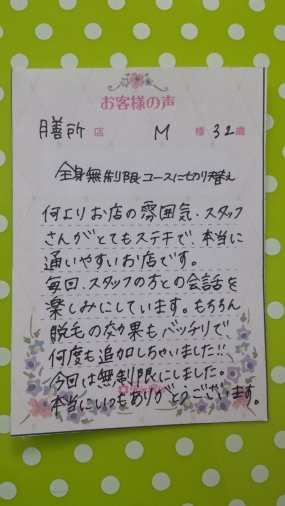 お客様の声
膳所店 M様 32歳
全身無制限コースにのり替え
何よりお店の雰囲気、スタッフ
さんがとてもステキで、本当に
通いやすいお店です。
毎回、スタッフの方との会話を
楽しみにしています。もちろん
脱毛の効果もバッチリで
何度も追加しちゃいました!!
今回は無制限にしました。
本当にいつもありがとうございます。